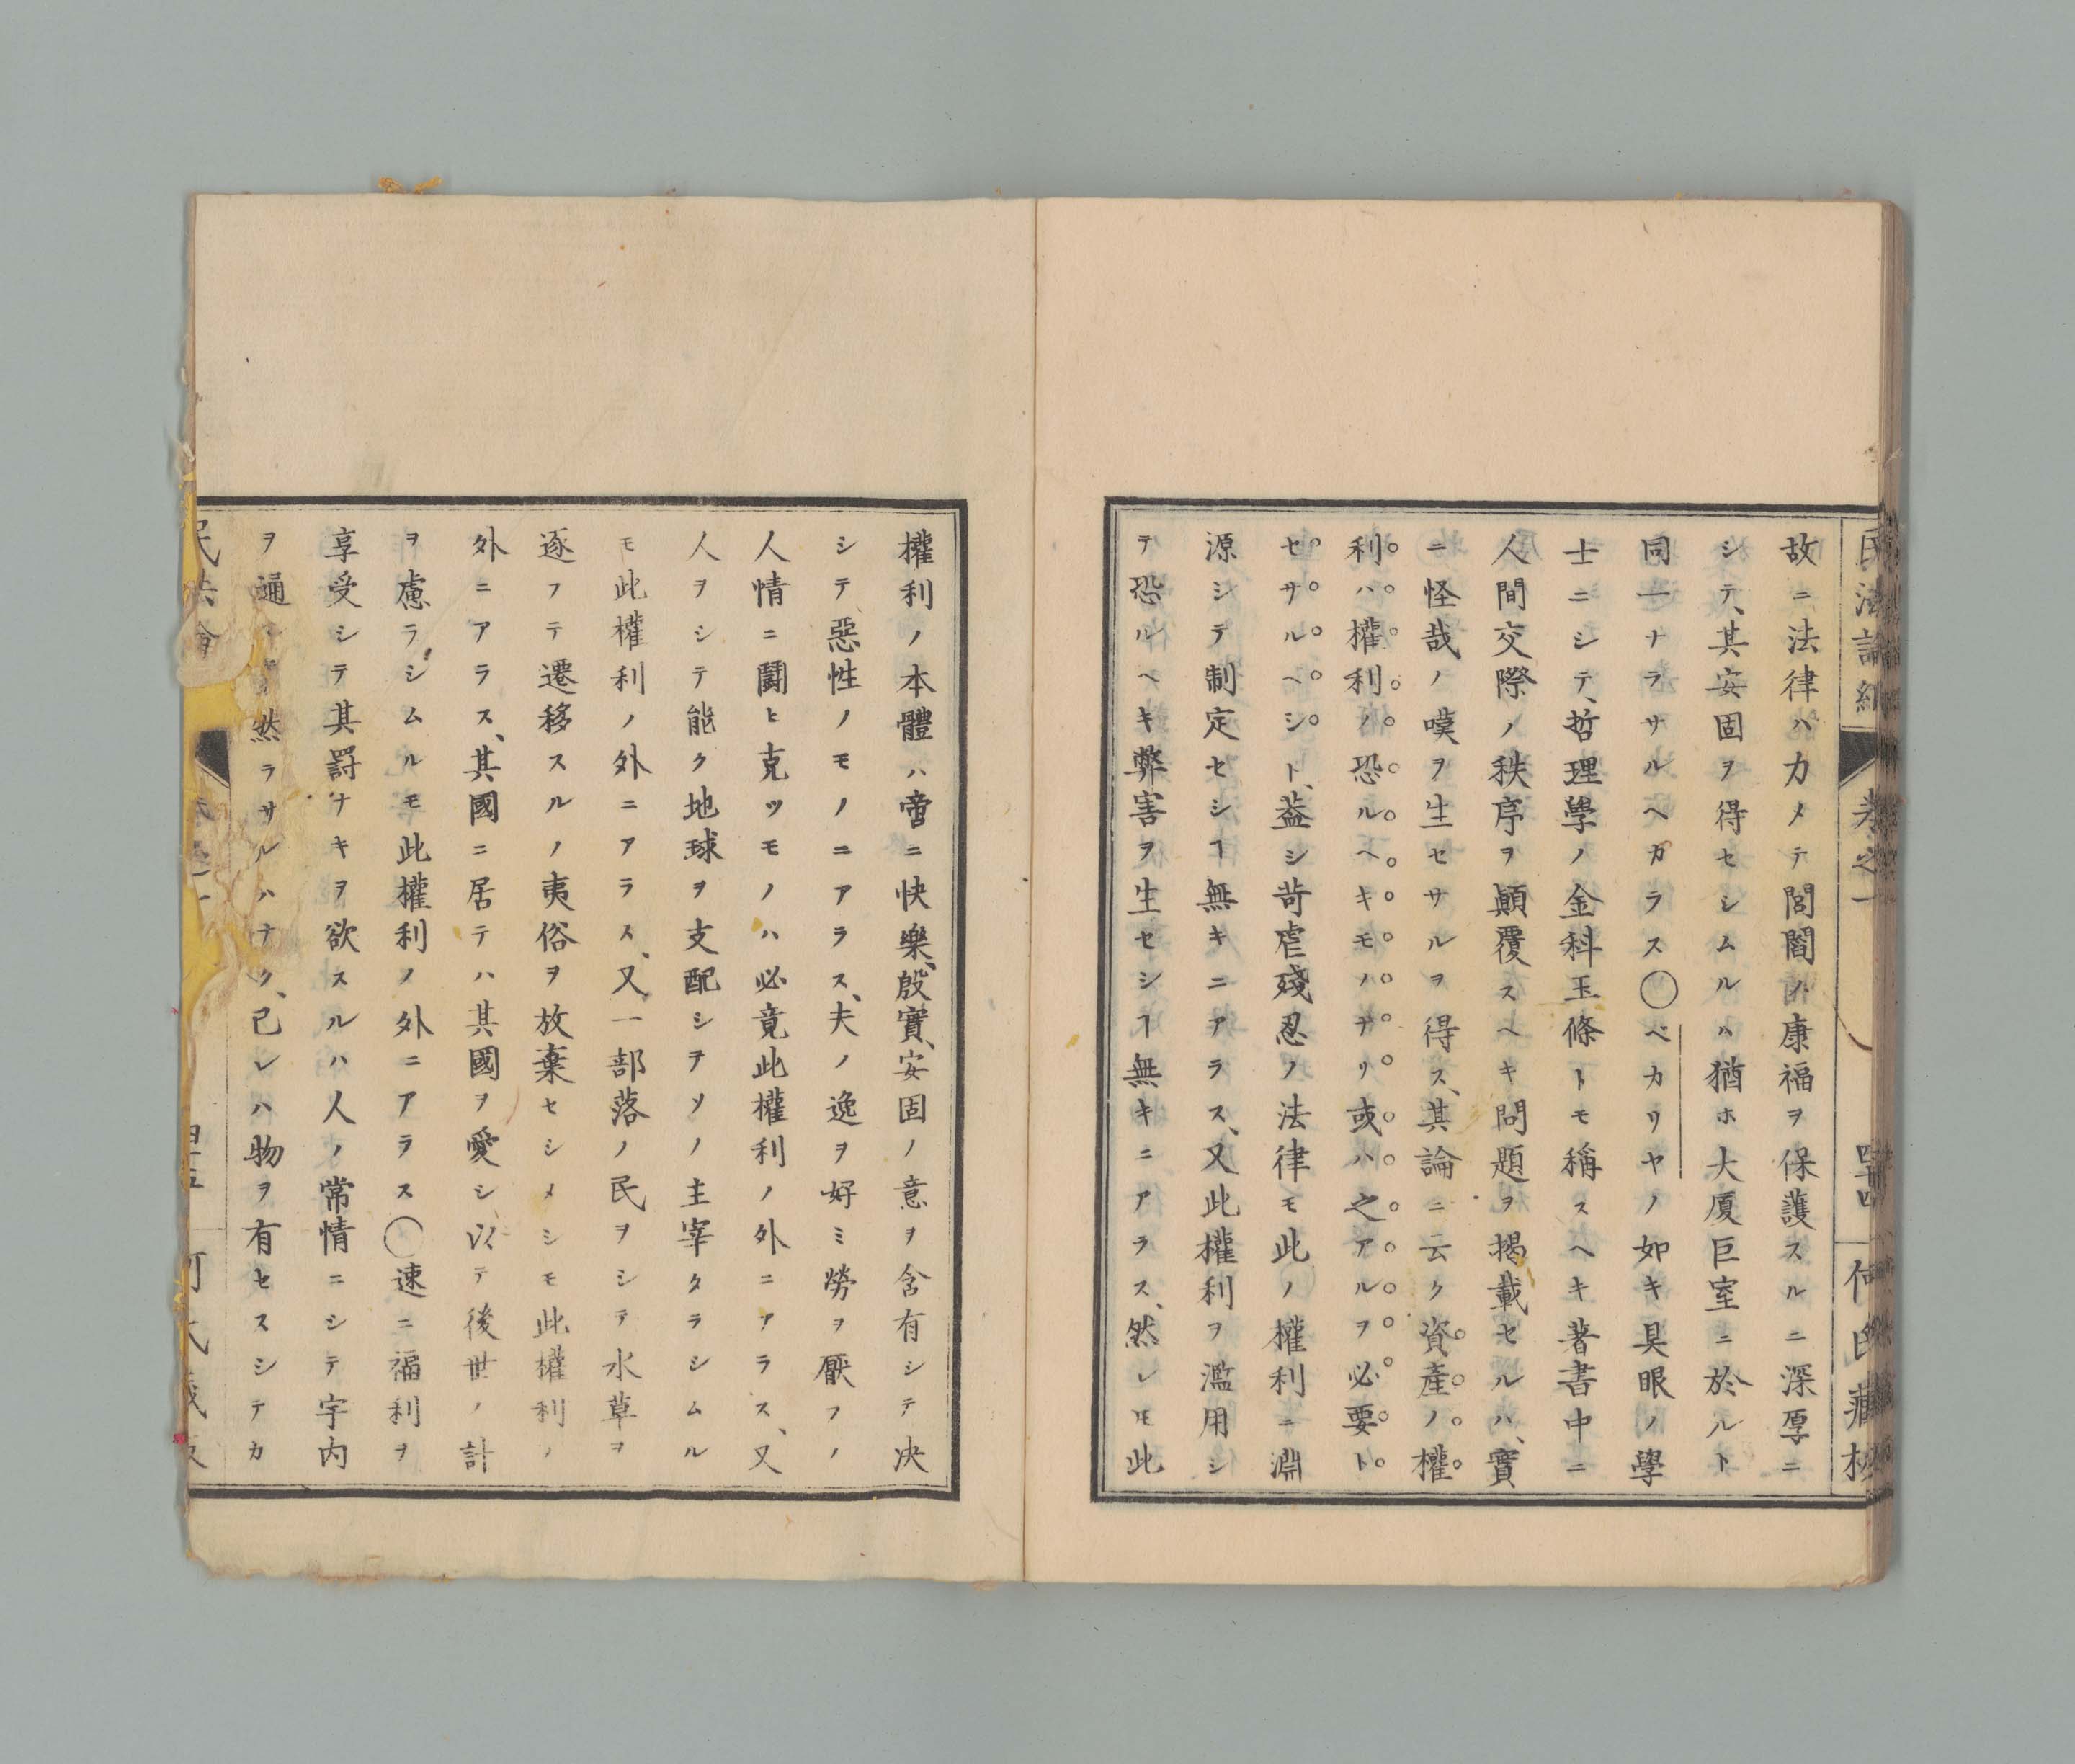 民法論綱 卷之一 四十四 何氏藏板
故ニ法律ハ力メテ閭閻ノ康福ヲ保護スルニ深厚ニ
シテ、其安固ヲ得セシムルハ猶ホ大厦巨室ニ於ルト
同一ナラサルヘカラス〇ベカリヤノ如キ具眼ノ學
士ニシテ、哲理學ノ金科玉條トモ稱スヘキ著書中ニ
人間交際ノ秩序ヲ顚覆スヘキ問題ヲ揭載セルハ、實
ニ怪哉ノ嘆ヲ生セサルヲ得ス、其論ニ云ク資產ノ權
利ハ權利ノ恐ルヘキモノナリ或ハ之アルヲ必要ト
セサルヘシト、蓋シ苛虐殘忍ノ法律モ此ノ權利ニ淵
源シテ制定セシヿ無キニアラス、又此權利ヲ濫用シ
テ恐ルヘキ弊害ヲ生セシヿ無キニアラス、然レㇳモ此
權利ノ本體ハ啻ニ快樂、殷實、安固ノ意ヲ含有シテ决
シテ惡性ノモノニアラス、夫ノ逸ヲ好ミ勞ヲ厭フノ
人情ニ鬪ヒ克ツモノハ必竟此權利ノ外ニアラス、又
人ヲシテ能ク地球ヲ支配シヲソノ主宰タラシムル
モ此權利ノ外ニアラス、又一部落ノ民ヲシテ水草ヲ
逐フテ遷移スルノ夷俗ヲ放棄セシメシモ此權利ノ
外ニアラス、其國ニ居テハ其國ヲ愛シ以テ後世ノ計
ヲ慮ラシムルモ此權利ノ外ニアラス〇速ニ福利ヲ
享受シテ其罸ナキヲ欲スルハ人ノ常情ニシテ宇内
ヲ通 然ラサルハナク、己レハ物ヲ有セスシテカ